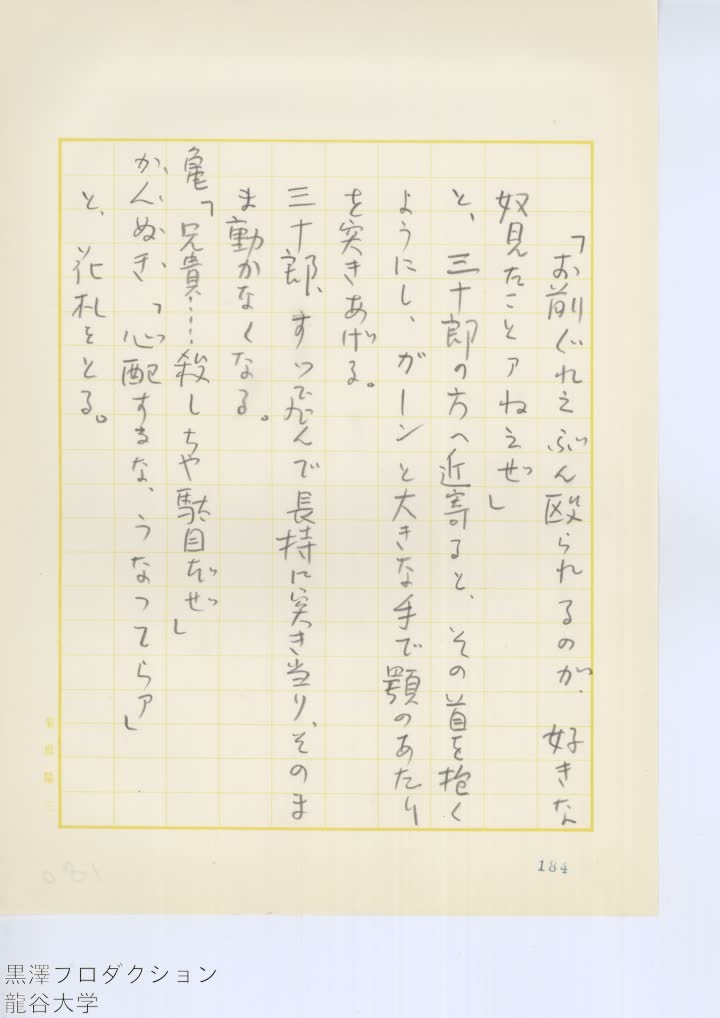 「お前ぐれえぶん殴られるのが、好きな
奴見たことァねえぜ」
と、三十郎の方へ近寄ると、その首を抱く
ようにし、ガーンと大きな手で顎のあたり
を突きあげる。
三十郎、すっ飛んで長持に突き当り、そのま
ま動かなくなる。
亀「兄貴……殺しちや駄目だぜ」
かんぬき「心配するな、うなつてらァ」
と、花札をとる。
184
黒澤プロダクション
龍谷大学